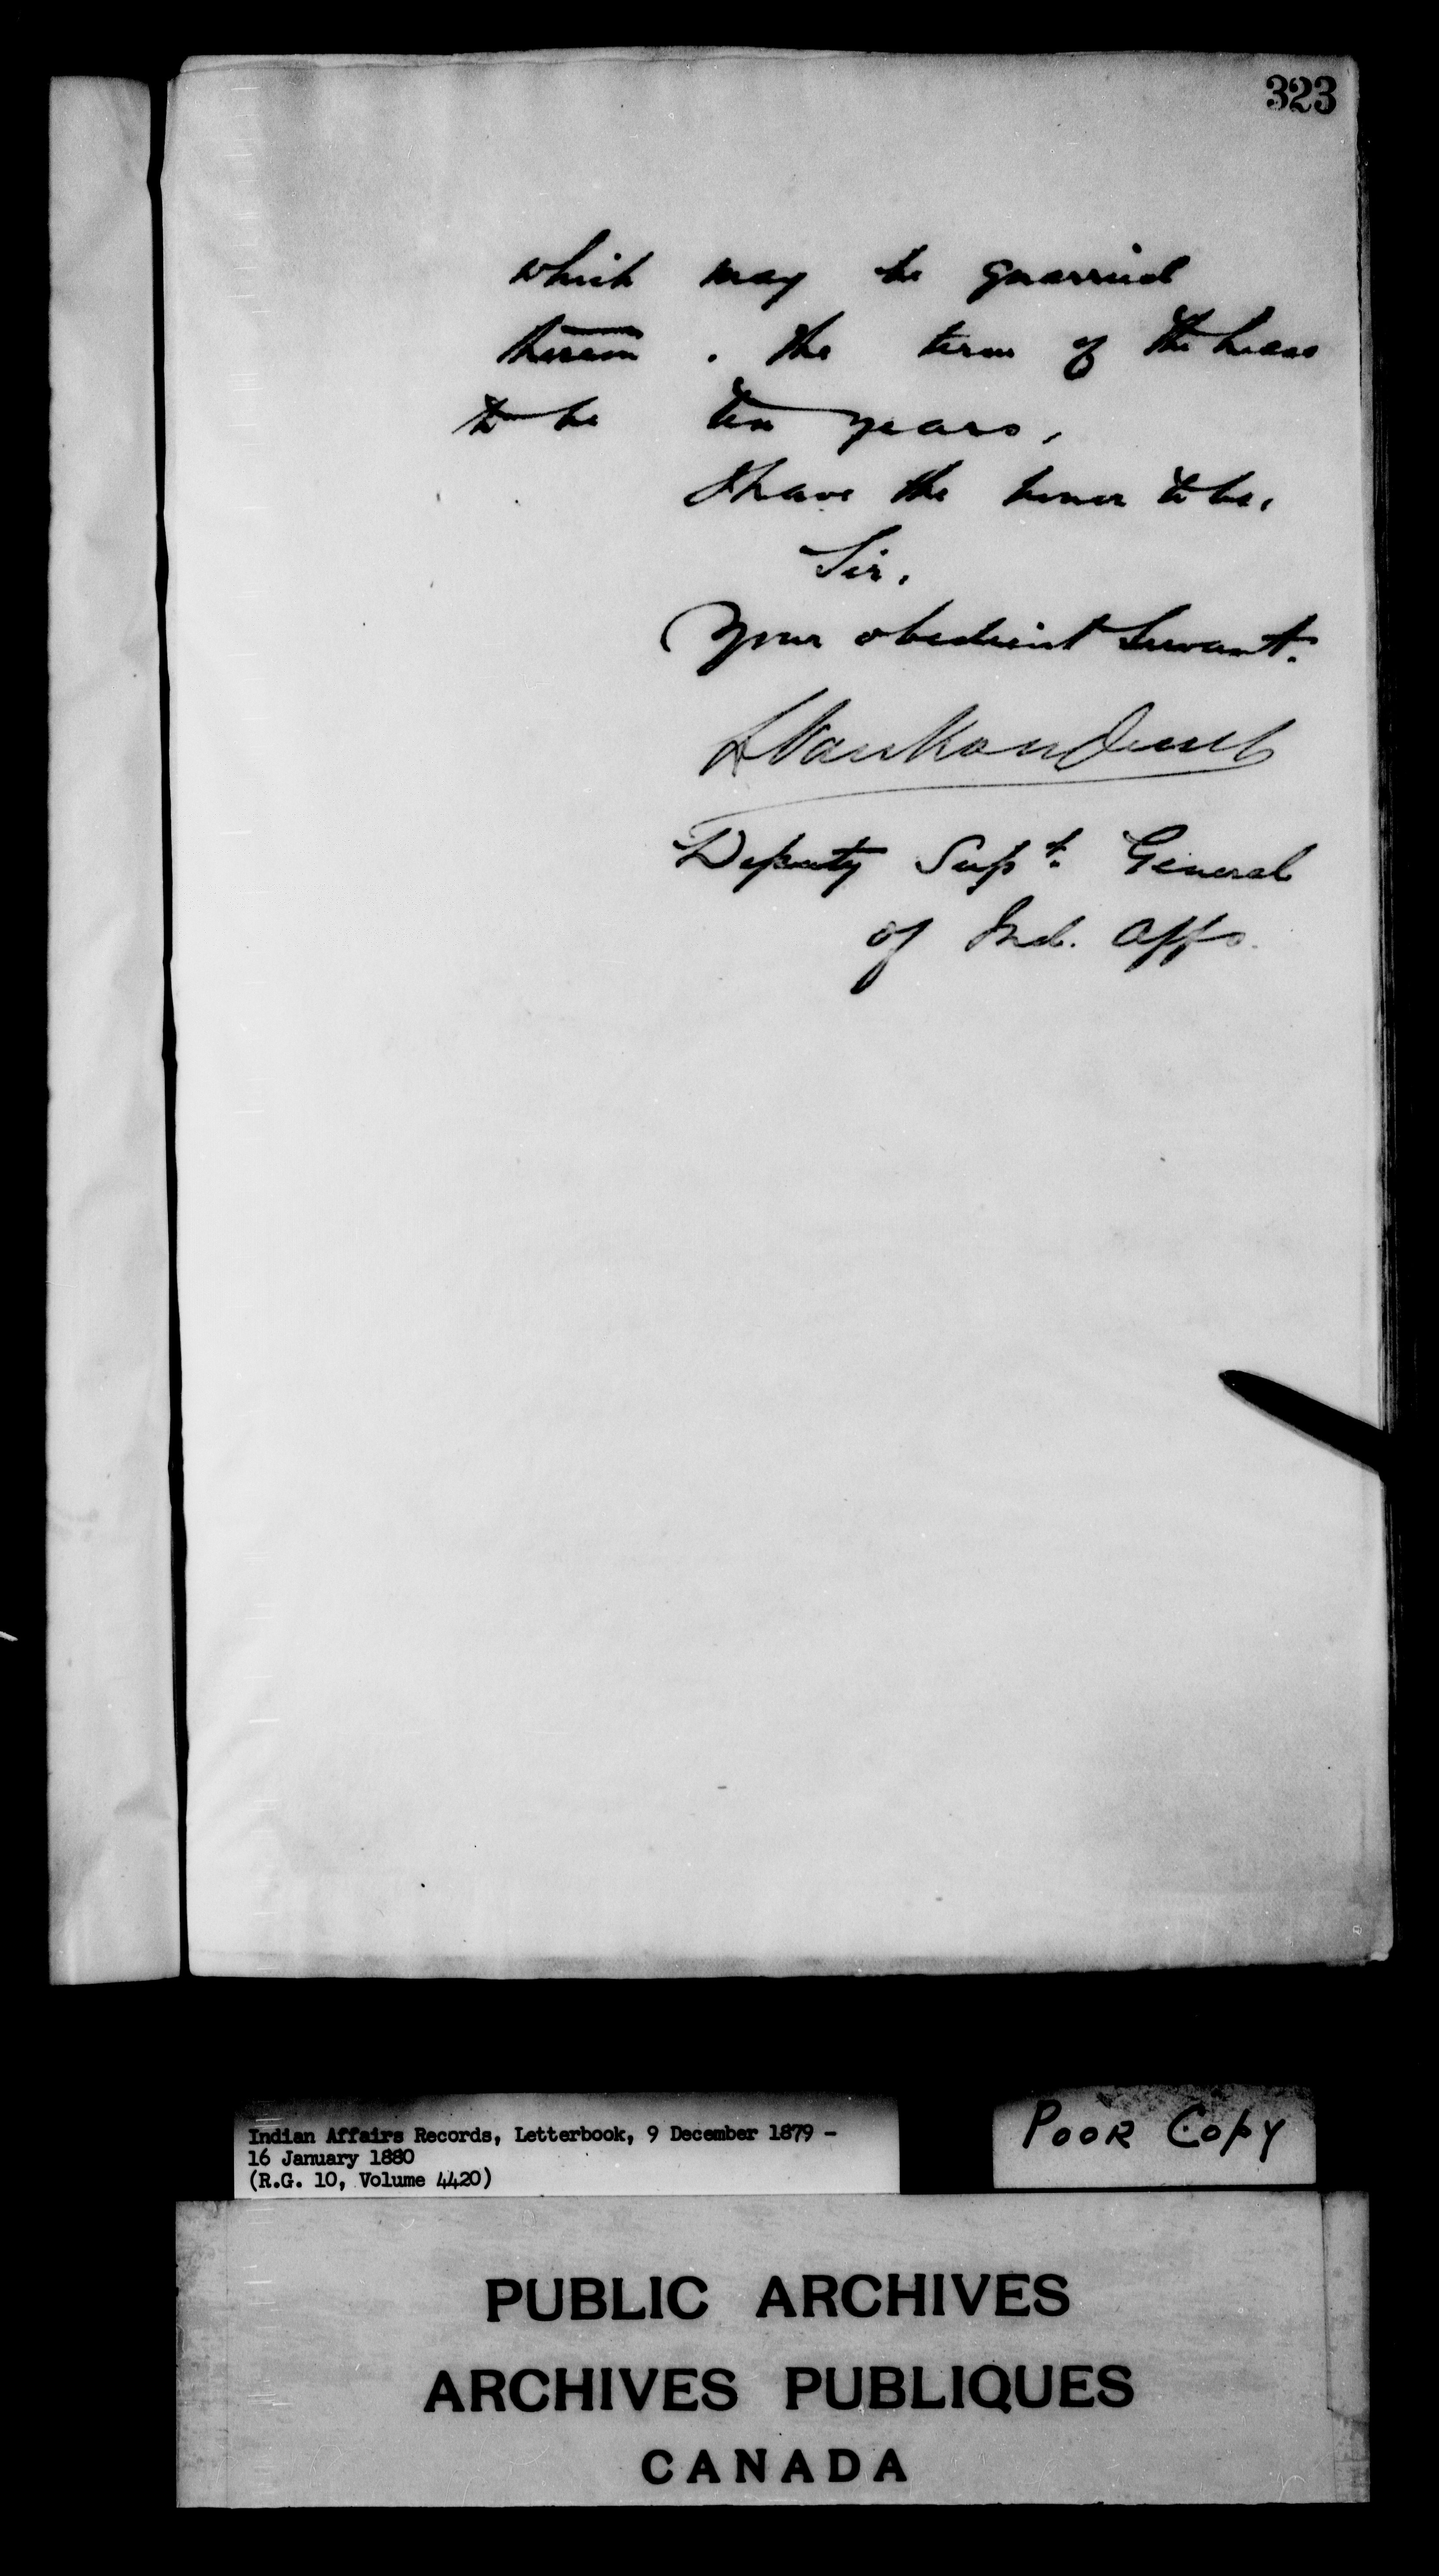 323
which may be quarried
thereon. the term of the Lease
to be ten years,
I have the honor to be,
Sir,
Your obedient Servant.
L VanKoughnet
Deputy Supt. General
of Ind. Affs.
Indian Affairs Records, Letterbook, 9 December 1879 -
16 January 1880
(R.G. 10, Volume 4420)
POOR COPY
PUBLIC ARCHIVES
ARCHIVES PUBLIQUES
CANADA